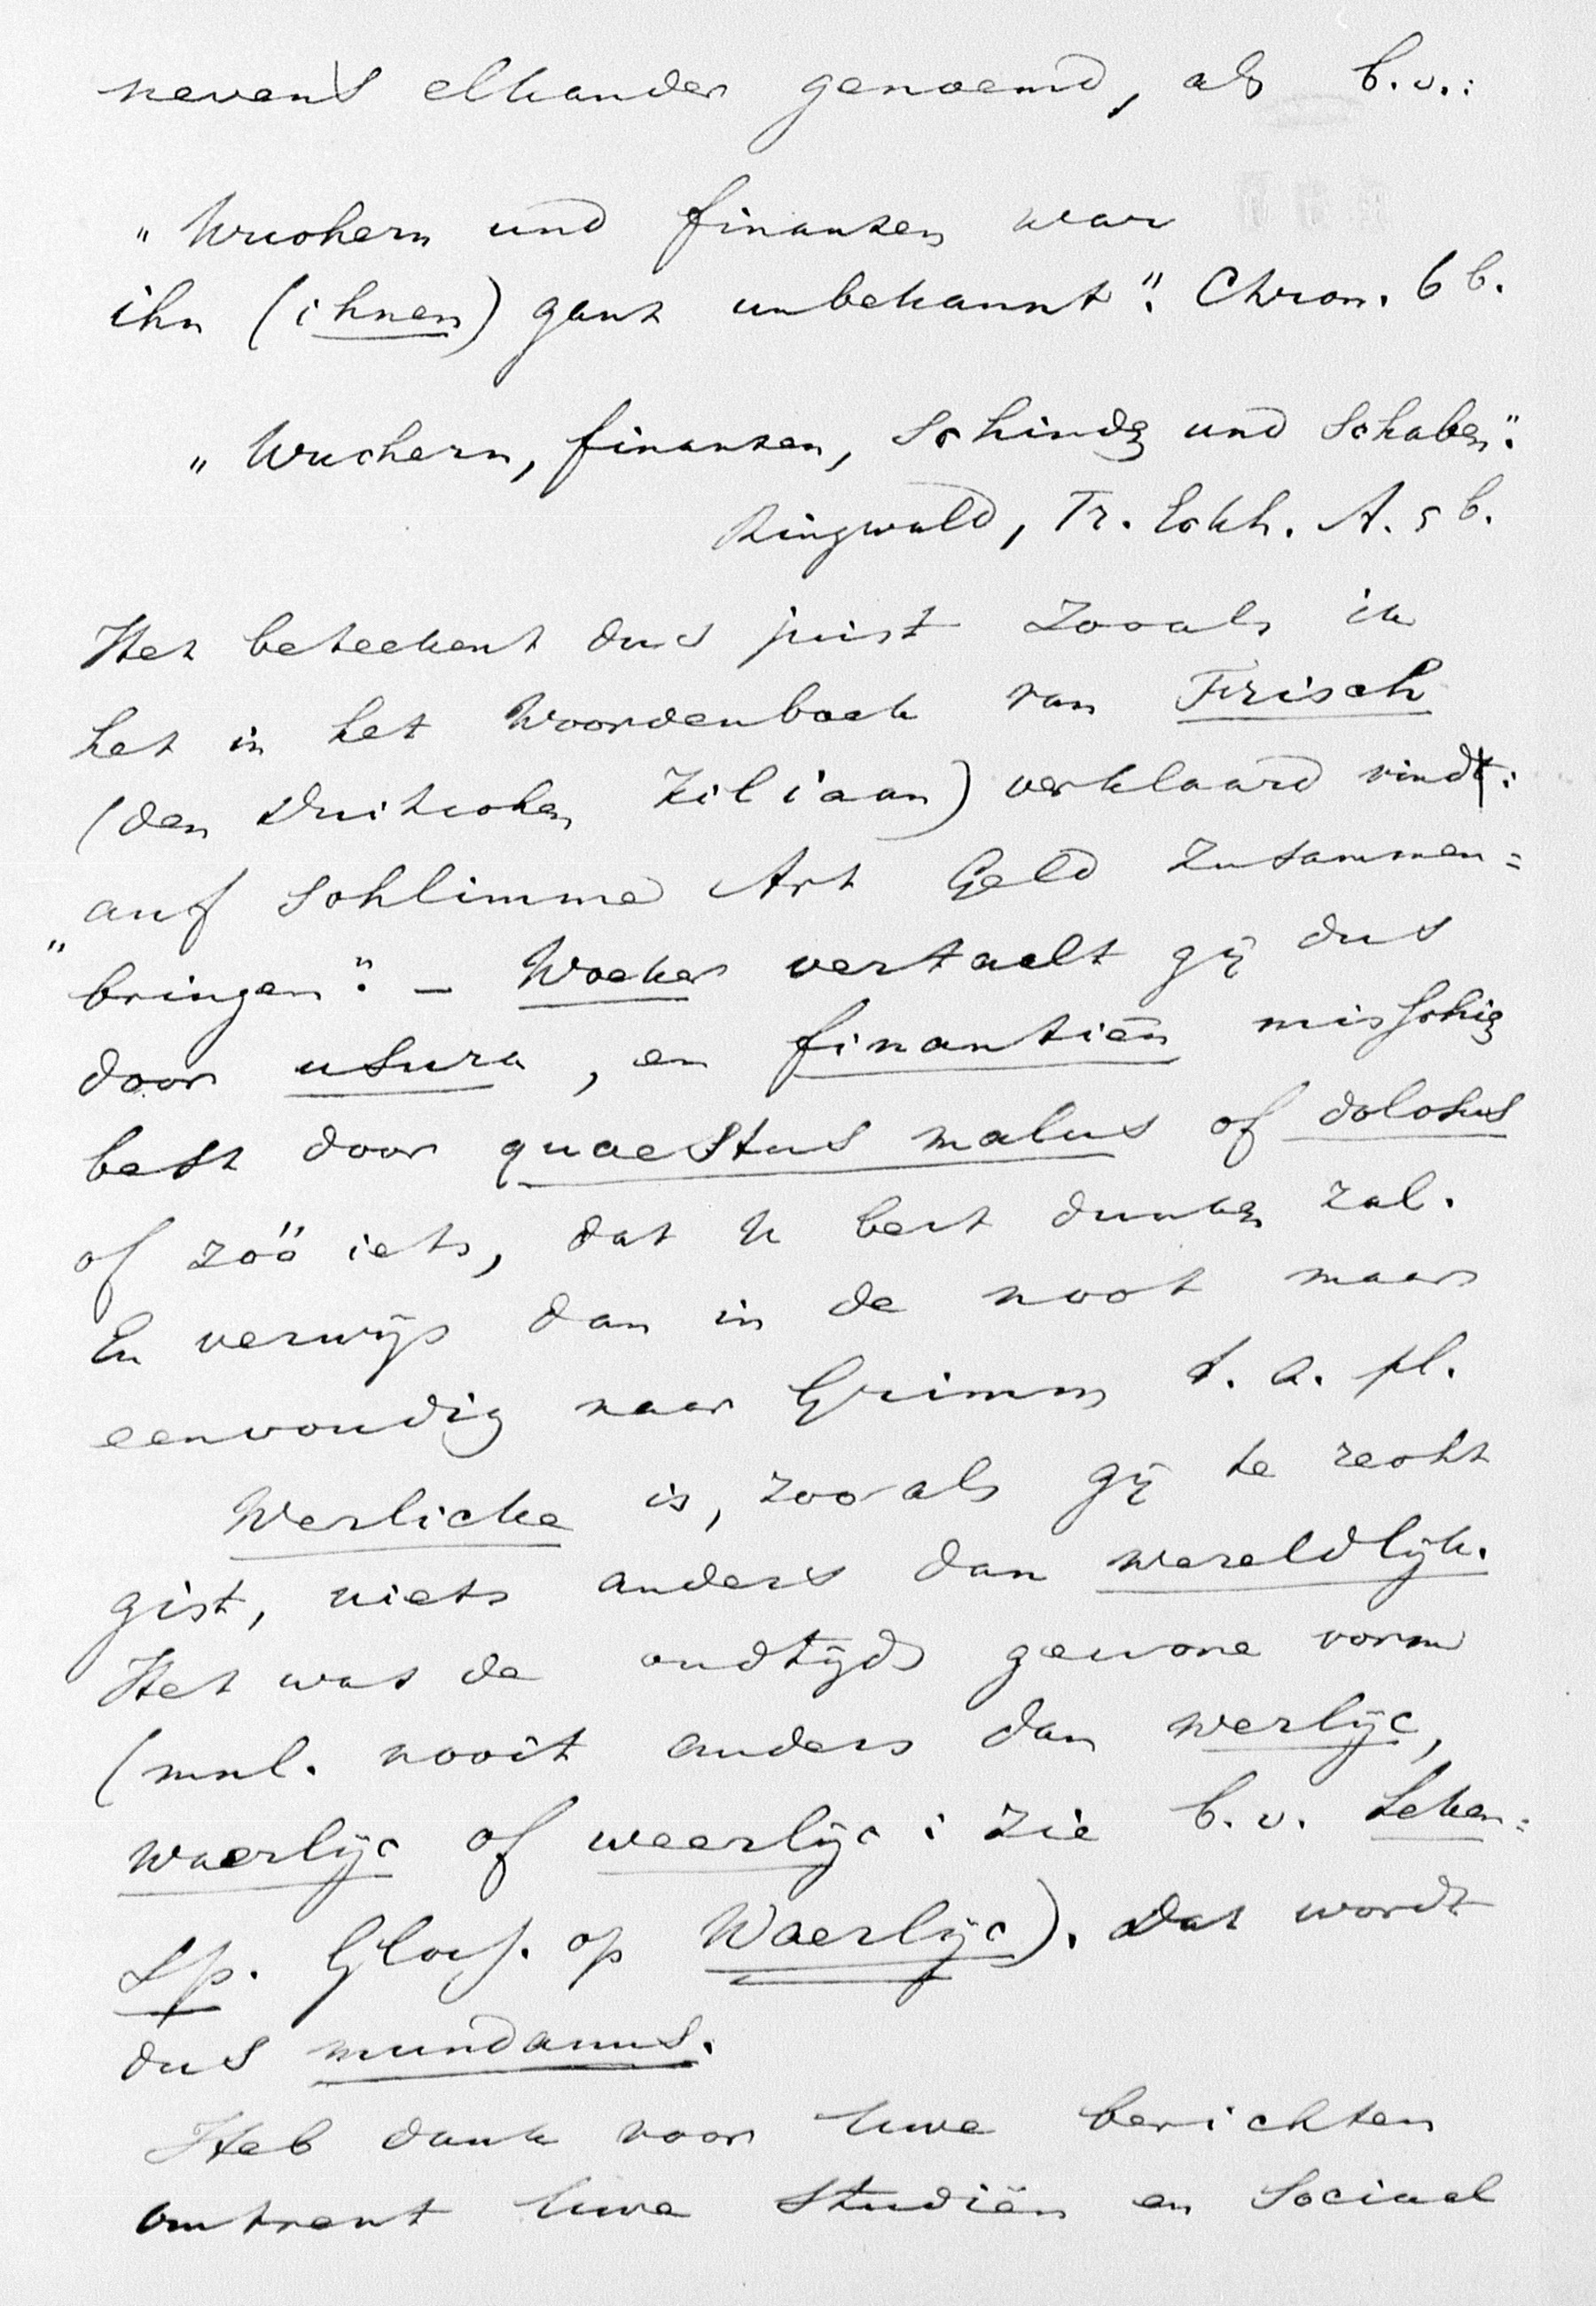 nevens elkander genoemd, als b.v.:
„Wuchern und finanzen war
ihn (ihnen) ganz unbekannt". Chron. 6 b.
„Wuchern, finanzen, Schinden und Schaben".
Ringwald, Tr. Eckh. A. 5 b.
Het beteekent dus juist zooals ik
het in het Woordenboek van Frisch
(den Duitschen Kiliaan) verklaard vind:
„auf schlimme Art Geld zusammen=
bringen". – Woeker vertaelt gij dus
door usura, en finantiën misschien
best door quaestus malus of dolosus
of zóó iets, dat U best dunken zal.
En verwijs dan in de noot maar
eenvoudig naar Grimm t. a. pl.
Werlicke is, zooals gij te recht
gist, niets anders dan wereldlijk.
Het was de oudtijds gewone vorm
(mnl. nooit anders dan werlijc,
waerlijc of weerlijc: zie b.v. Leken=
Sp. Gloss. op Waerlijc). Dat wordt
dus mundanus.
Heb dank voor Uwe berichten
omtrent Uwe Studiën en Sociael